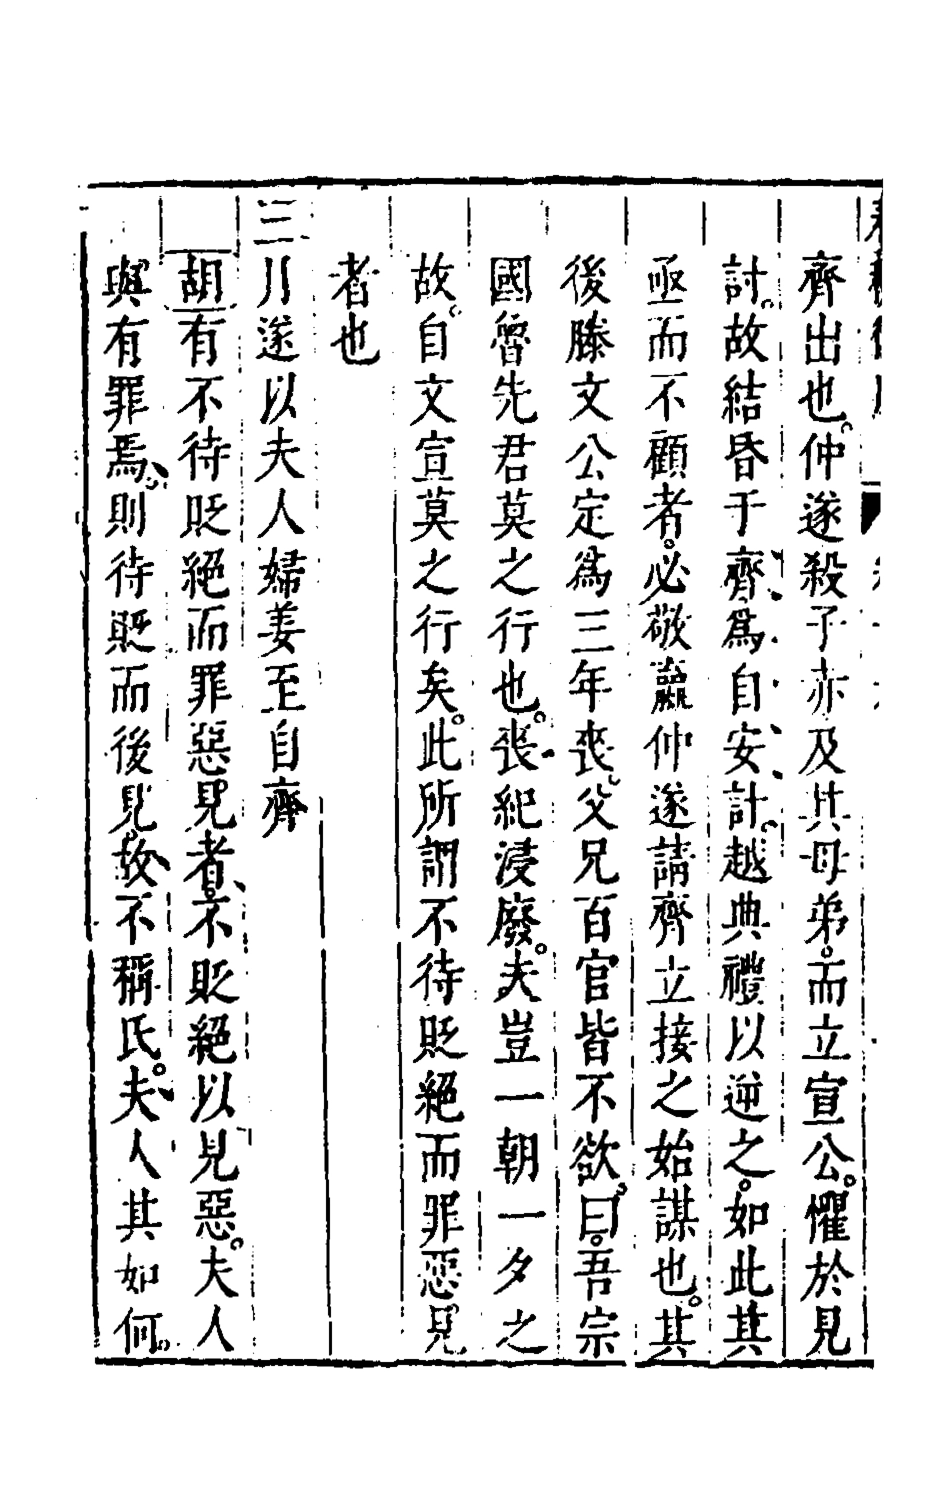 齊出也仲遂殺子赤及其母弟而立宣公懼於見
討故結昏于齊爲自安計越典禮以逆之如此其
亟而不顧者必敬嬴仲遂請齊立接之始謀也其
後滕文公定爲三年喪父兄百官皆不欲曰吾宗
國魯先君莫之行也喪紀浸廢夫豈一朝一夕之
故自文宣莫之行矣此所謂不待貶絕而罪惡見
者也
三月遂以夫人婦姜至自齊
胡有不待貶絕而罪惡見者不貶絕以見惡夫人
與有罪焉則待貶而後見故不稱氏夫人其如何